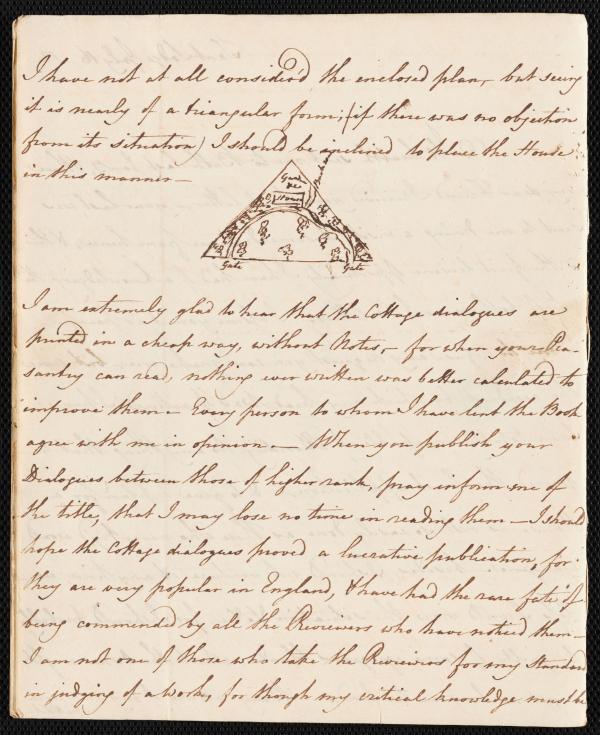 I have not at all consider'd the enclosed plan, but seeing
it is nearly of a triangular form; (if there was no objection
from its situation) I should be inclined to place the House
in this manner—
Gar
House
Gate
Gate
I am extremely glad to hear that the Cottage dialogues are
printed in a cheap way, without Notes,— for when your Pea-
santry can read, nothing ever written was better calculated to
improve them— Every person to whom I have lent the Book
agree with me in opinion.— When you publish your
Dialogues between those of higher rank, pray inform me of
the title, that I may lose no time in reading them— I should
hope the Cottage dialogues proved a lucrative publication, for
they are very popular in England, & have had the rare fate of
being commended by all the Reviewers who have noticed them—
I am not one of those who take the Reviewers for my Standard
in judging of a work, for though my critical knowledge must be